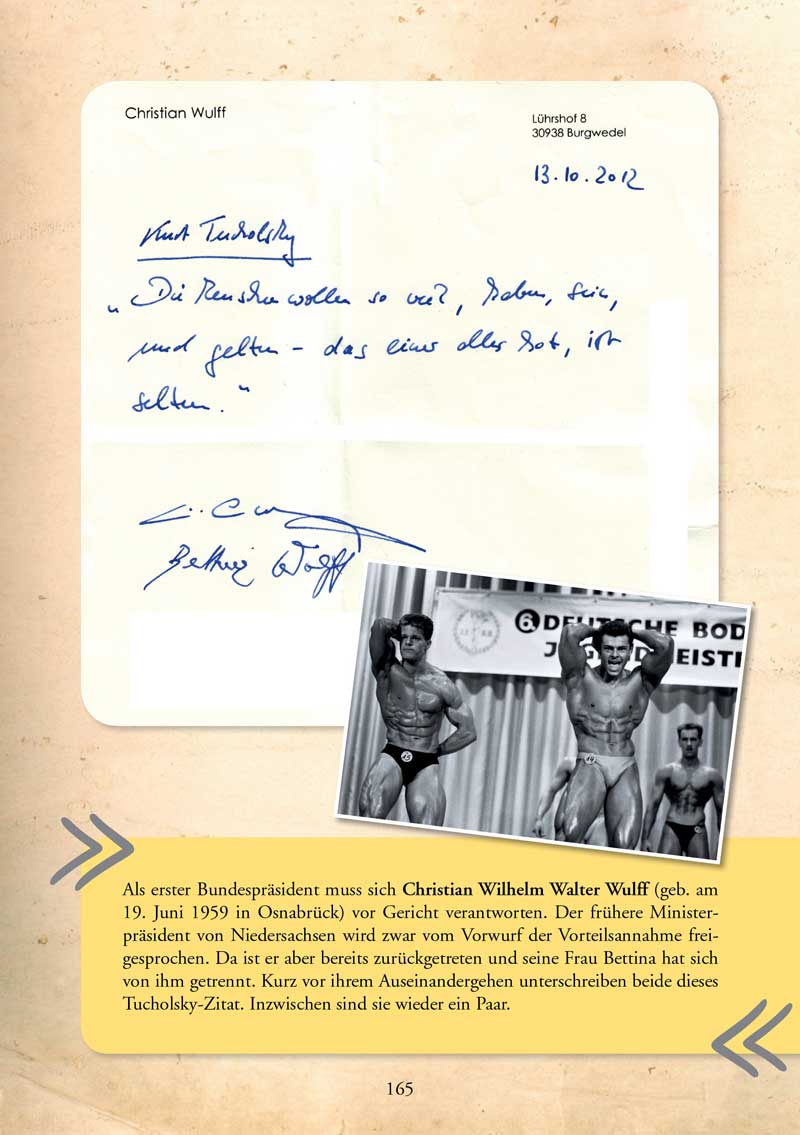 Christian Wulff
Lührshof 8
30938 Burgwedel
13.10.2012
Kurt Tucholsky
„Die Menschen wollen so viel, haben, sein,
und gelten – das einer alles hat, ist
selten.“
Bettina Wulff
6. DEUTSCHE BOD
JUGENDMEISTE
15
Als erster Bundespräsident muss sich Christian Wilhelm Walter Wulff (geb. am
19. Juni 1959 in Osnabrück) vor Gericht verantworten. Der frühere Minister-
präsident von Niedersachsen wird zwar vom Vorwurf der Vorteilsannahme frei-
gesprochen. Da ist er aber bereits zurückgetreten und seine Frau Bettina hat sich
von ihm getrennt. Kurz vor ihrem Auseinandergehen unterschreiben beide dieses
Tucholsky-Zitat. Inzwischen sind sie wieder ein Paar.
165